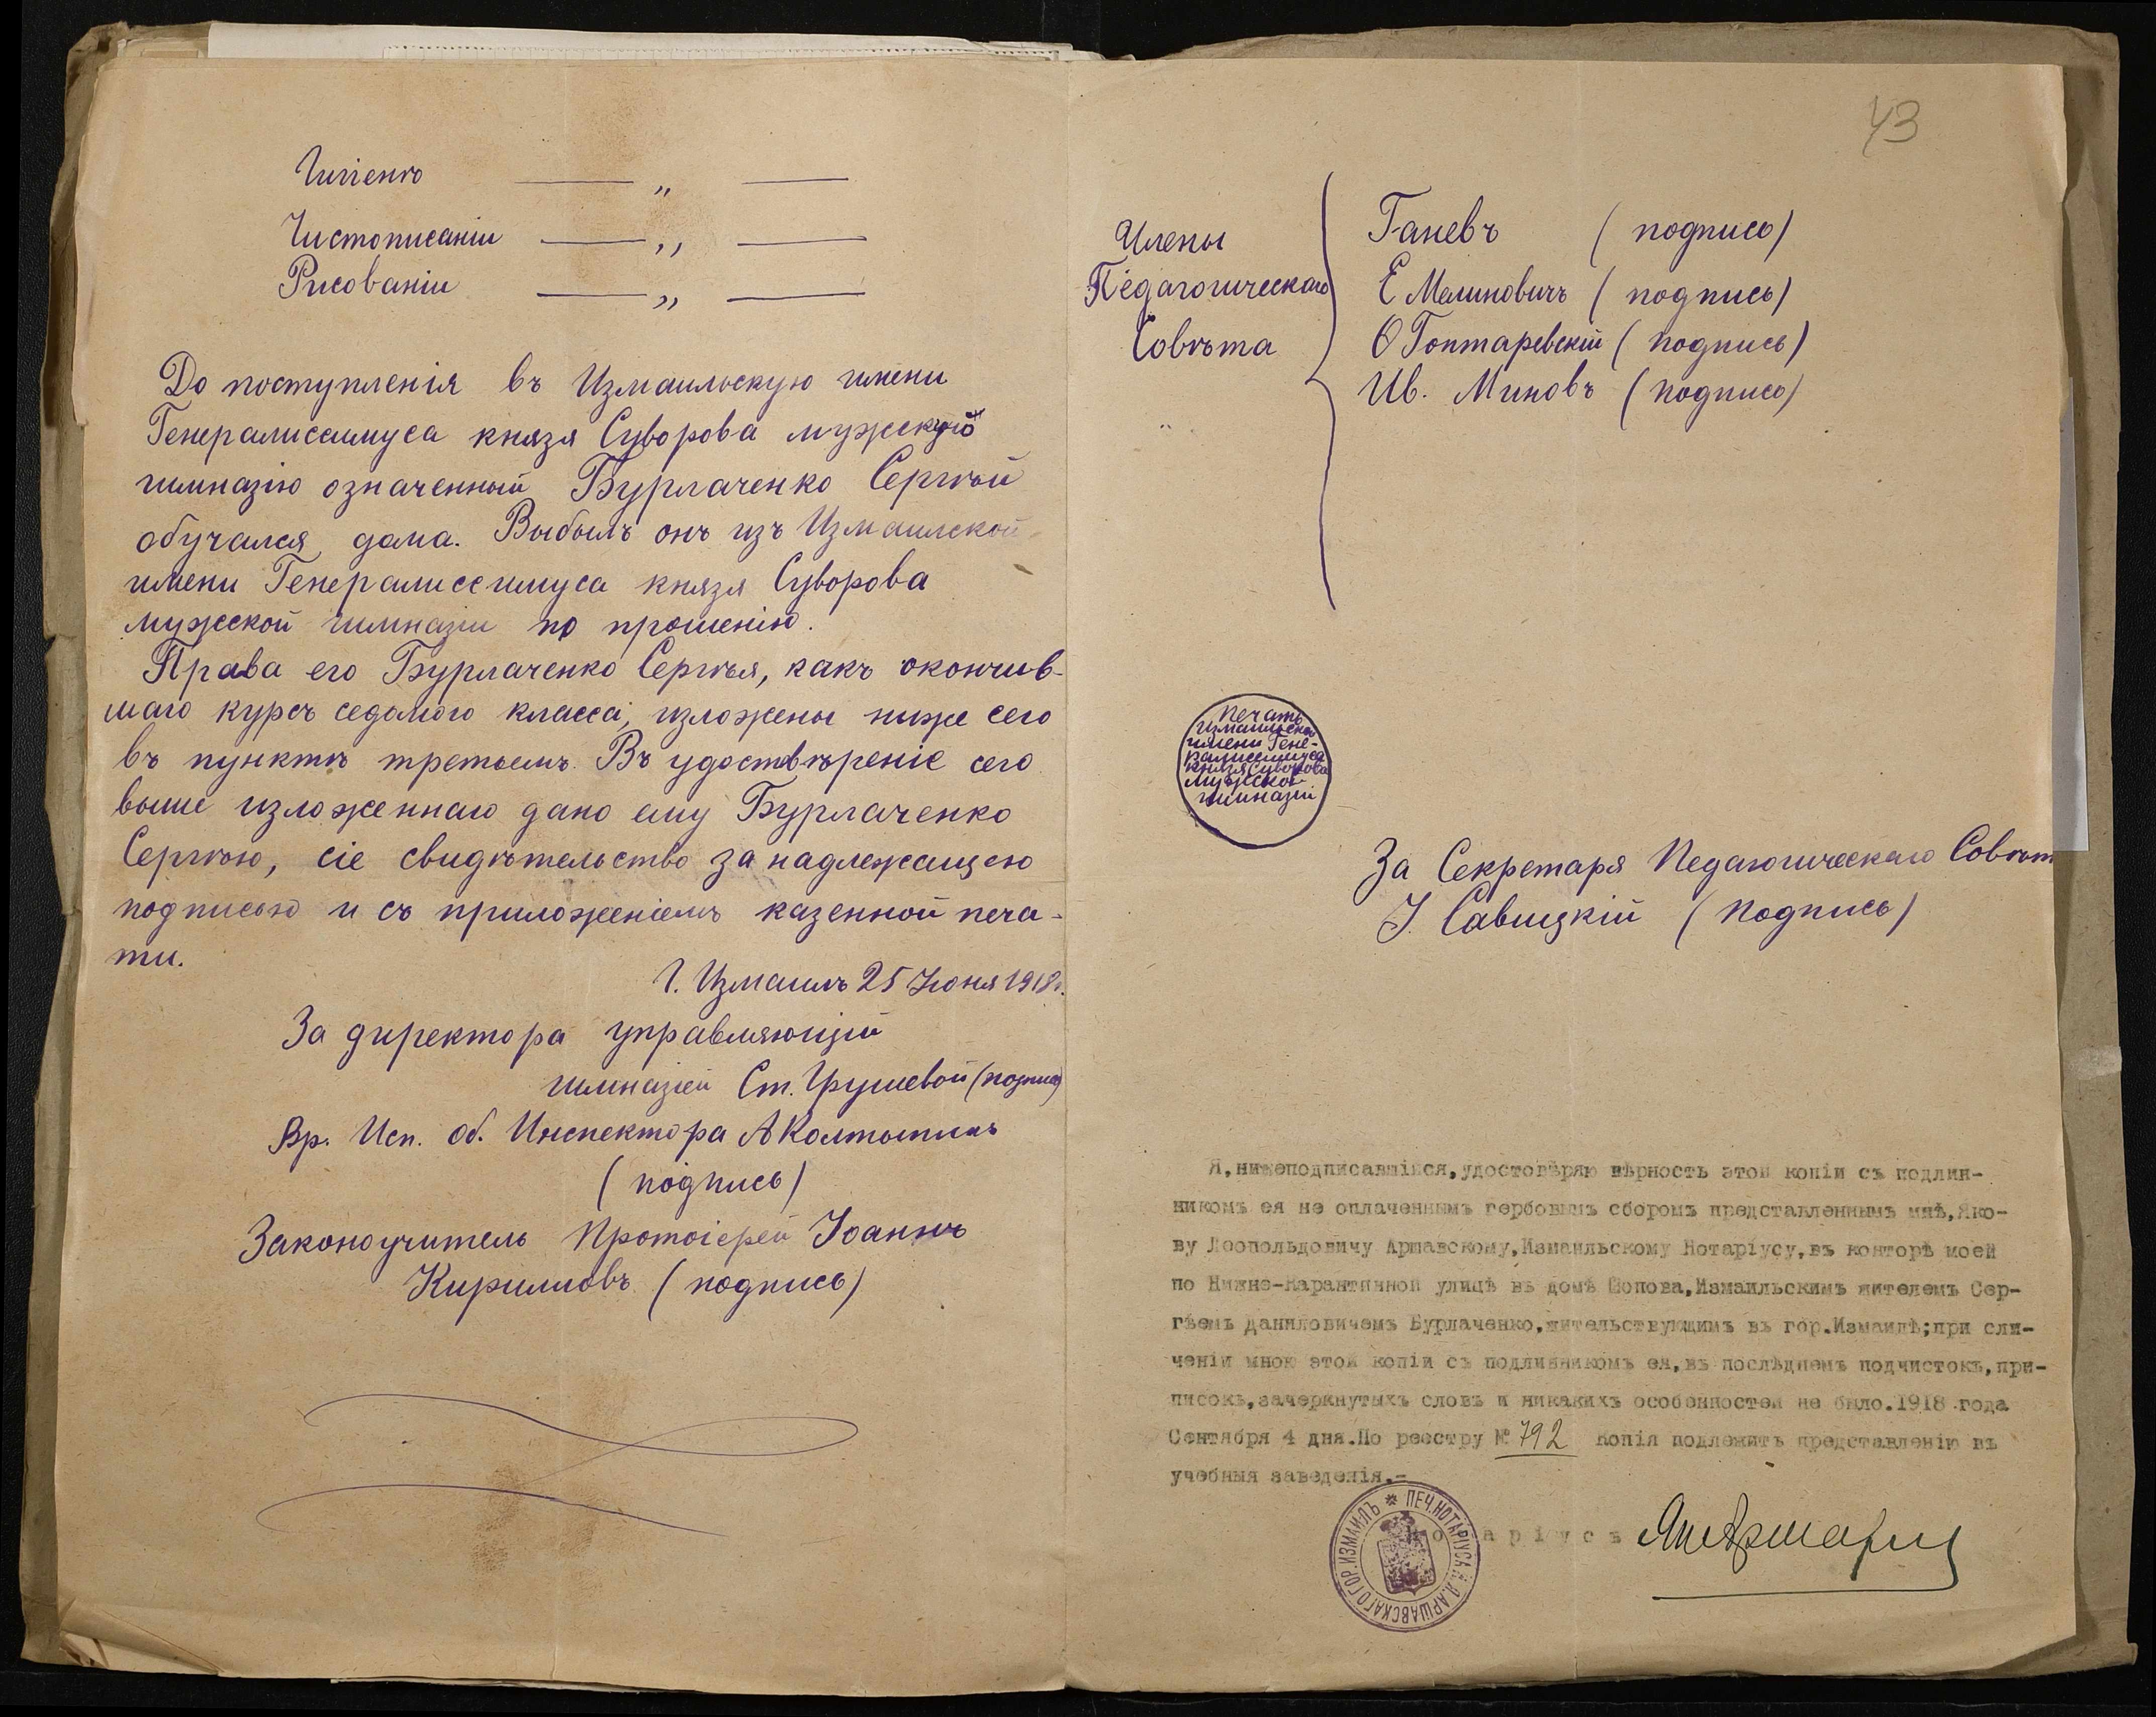 Гигіенѣ — „ —
Чистописаніи — „ —
Рисованіи — „ —
До поступленія въ Измаильскую имени
Генералиссимуса князя Суворова мужскую
гимназію означенный Бурлаченко Сергѣй
обучался дома. Выбылъ онъ изъ Измаилской
имени Генералиссимуса князя Суворова
мужской гимназіи по прошенію.
Права его Бурлаченко Сергѣя, какъ окончив-
шаго курсъ седьмого класса, изложены ниже сего
въ пунктѣ третьемъ. Въ удостовѣреніе сего
выше изложеннаго дано ему Бурлаченко
Сергѣю, сіе свидѣтельство за надлежащею
подписью и съ приложеніемъ казенной печа-
ти.
Г. Измаилъ 25 Іюня 1918 г.
За директора управляющій
гимназіей Ст. Грушевой (подпись)
Вр. Исп. об. Инспектора А Колтыпинъ
(подпись)
Законоучитель Протоіерей Іоаннъ
Кирилловъ (подпись)
43
Члены
Педагогическаго
Совѣта
Ганевъ (подпись)
Е Малиновичъ (подпись)
О Гонтаревскій (подпись)
Ив. Миновъ (подпись)
Печать
Измаильской
имени Гене-
ралиссимуса
князя Суворова
мужской
гимназіи
За Секретаря Педагогическаго Совѣт
І. Савицкій (подпись)
Я, нижеподписавшійся, удостовѣряю вѣрность этой копіи съ подлин-
никомъ ея не оплаченнымъ гербовымъ сборомъ представленнымъ мнѣ, Яко-
ву Леопольдовичу Аршавскому, Измаильскому Нотаріусу, въ конторѣ моей
по Нижне-Карантинной улицѣ въ домѣ Попова, Измаильскимъ жителемъ Сер-
гѣемъ Даниловичемъ Бурлаченко, жительствующимъ въ гор. Измаилѣ; при сли-
ченіи мною этой копіи съ подлинникомъ ея, въ послѣднемъ подчистокъ, при-
писокъ, зачеркнутыхъ словъ и никакихъ особенностей не было. 1918 года
Сентября 4 дня. По реестру № 792 Копія подлежитъ представленію въ
учебныя заведенія.-
Нотаріусъ
ПЕЧ. НОТАРІУСА Я. Л. АРШАВСКАГО ГОР. ИЗМАИЛЪ